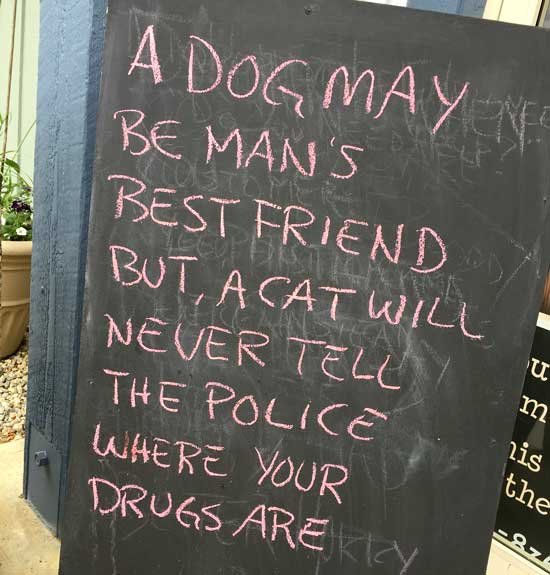 A DOG MAY
BE MAN'S
BEST FRIEND
BUT, A CAT WILL
NEVER TELL
THE POLICE
WHERE YOUR
DRUGS ARE
his
the